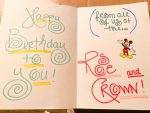 Happy
Birthday
to
you!
from all
of us at
the
Rose
and
Crown!